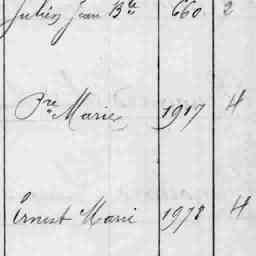 Julien Jean Bte 660. 2
Pre Marie 1917 4
Ernest Marie 1978 4